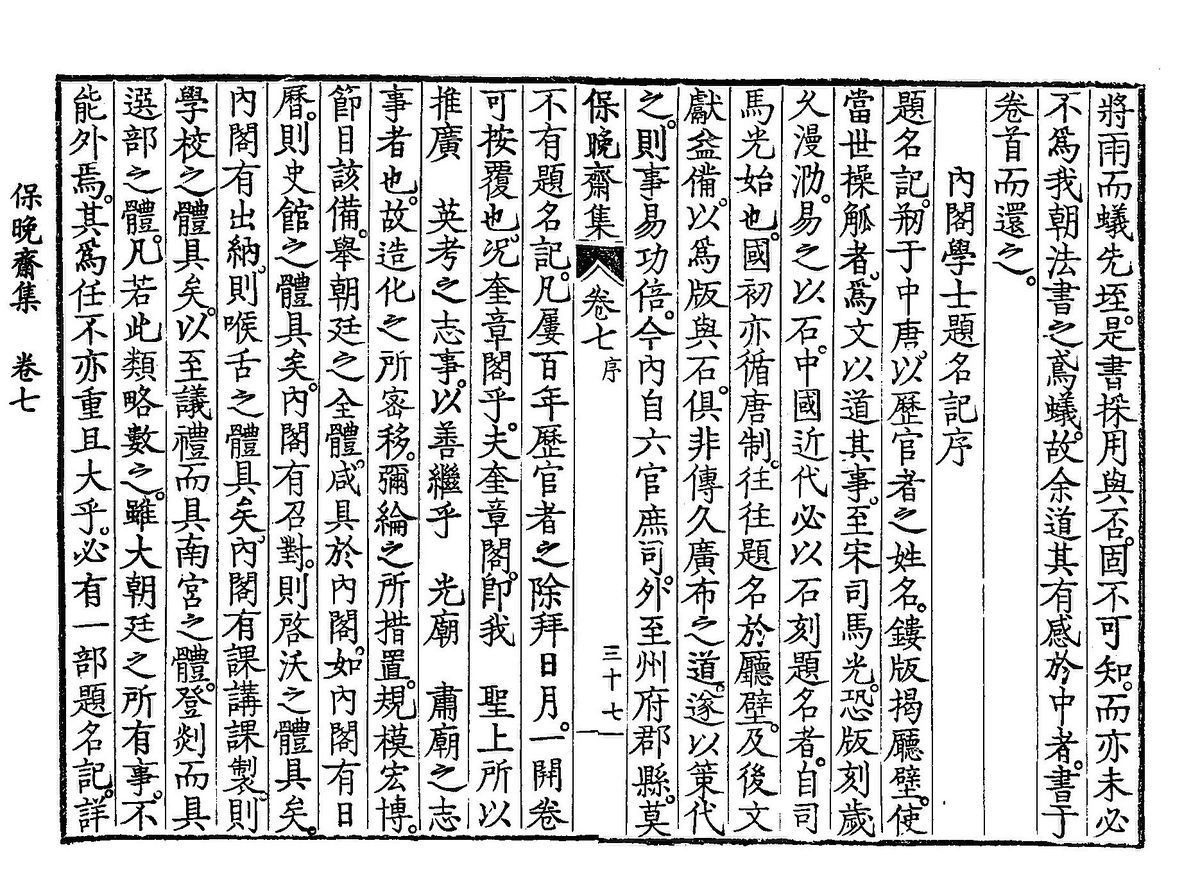 將雨而蟻先垤。是書採用與否。固不可知。而亦未必
不爲我朝法書之鳶蟻。故余道其有感於中者。書于
卷首而還之。
內閣學士題名記序
題名記。刱于中唐。以歷官者之姓名。鏤版揭廳壁。使
當世操觚者。爲文以道其事。至宋司馬光。恐版刻歲
久漫泐。易之以石。中國近代必以石刻題名者。自司
馬光始也。國初亦循唐制。往往題名於廳壁。及後文
獻益備。以爲版與石。俱非傳久廣布之道。遂以策代
之。則事易功倍。今內自六官庶司。外至州府郡縣。莫
保晚齋集 卷七 序 三十七
不有題名記。凡屢百年歷官者之除拜日月。一開卷
可按覆也。况奎章閣乎。夫奎章閣。卽我 聖上所以
推廣 英考之志事。以善繼乎 光廟 肅廟之志
事者也。故造化之所密移。彌綸之所措置。規模宏博。
節目該備。擧朝廷之全體。咸具於內閣。如內閣有日
曆。則史館之體具矣。內閣有召對。則啓沃之體具矣。
內閣有出納。則喉舌之體具矣。內閣有課講課製。則
學校之體具矣。以至議禮而具南宮之體。登剡而具
選部之體。凡若此類略數之。雖大朝廷之所有事。不
能外焉。其爲任不亦重且大乎。必有一部題名記。詳
保晚齋集 卷七